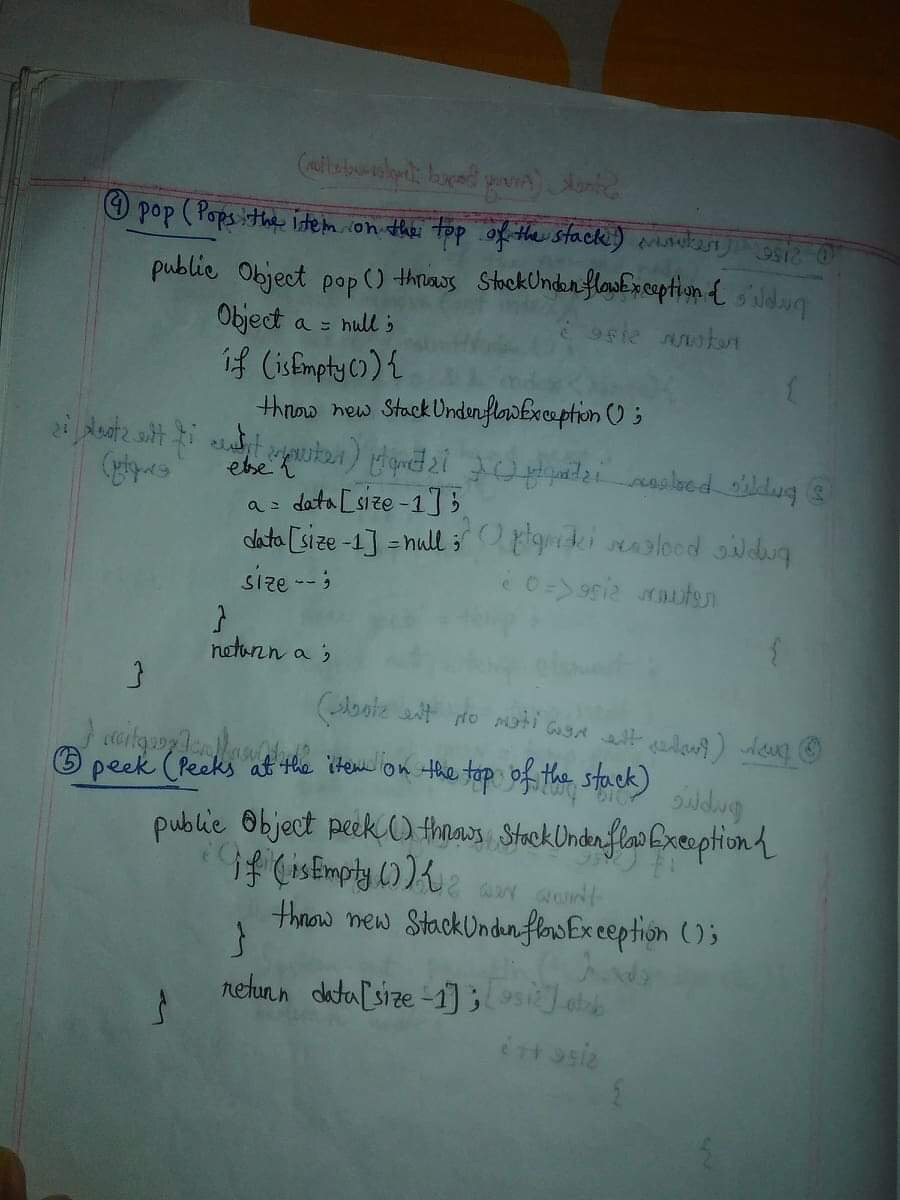 ④ pop (Pops the item on the top of the stack)
public Object pop () throws StackUnderflowException {
Object a = null ;
if (isEmpty()) {
throw new StackUnderflowException () ;
}
else {
a = data [size -1] ;
data [size -1] = null ;
size -- ;
}
return a ;
}
⑤ peek (Peeks at the item on the top of the stack)
public Object peek () throws StackUnderflowException {
if (isEmpty ()) {
throw new StackUnderflowException () ;
}
return data [size -1] ;
}